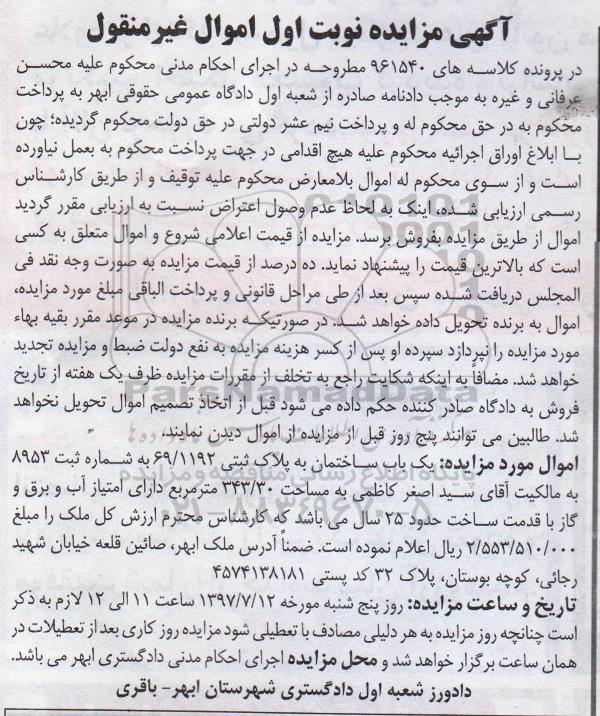 آگهی مزایده نوبت اول اموال غیرمنقول
در پرونده کلاسه های ۹۶۱۵۴۰ مطروحه در اجرای احکام مدنی محکوم علیه محسن
عرفانی و غیره به موجب دادنامه صادره از شعبه اول دادگاه عمومی حقوقی ابهر به پرداخت
محکوم به در حق محکوم له و پرداخت نیم عشر دولتی در حق دولت محکوم گردیده؛ چون
با ابلاغ اوراق اجرائیه محکوم علیه هیچ اقدامی در جهت پرداخت محکوم به بعمل نیاورده
است و از سوی محکوم له اموال بلامعارض محکوم علیه توقیف و از طریق کارشناس
رسمی ارزیابی شده، اینک به لحاظ عدم وصول اعتراض نسبت به ارزیابی مقرر گردید
اموال از طریق مزایده بفروش برسد. مزایده از قیمت اعلامی شروع و اموال متعلق به کسی
است که بالاترین قیمت را پیشنهاد نماید. ده درصد از قیمت مزایده به صورت وجه نقد فی
المجلس دریافت شده سپس بعد از طی مراحل قانونی و پرداخت الباقی مبلغ مورد مزایده،
اموال به برنده تحویل داده خواهد شد. در صورتیکه برنده مزایده در موعد مقرر بقیه بهاء
مورد مزایده را نپردازد سپرده او پس از کسر هزینه مزایده به نفع دولت ضبط و مزایده تجدید
خواهد شد. مضافاً به اینکه شکایت راجع به تخلف از مقررات مزایده ظرف یک هفته از تاریخ
فروش به دادگاه صادر کننده حکم داده می شود قبل از اتخاذ تصمیم اموال تحویل نخواهد
شد. طالبین می توانند پنج روز قبل از مزایده از اموال دیدن نمایند.
اموال مورد مزایده: یک باب ساختمان به پلاک ثبتی ۶۹/۱۱۹۲ به شماره ثبت ۸۹۵۳
به مالکیت آقای سید اصغر کاظمی به مساحت ۳۴۳/۳۰ مترمربع دارای امتیاز آب و برق و
گاز با قدمت ساخت حدود ۲۵ سال می باشد که کارشناس محترم ارزش کل ملک را مبلغ
۲/۵۵۳/۵۱۰/۰۰۰ ریال اعلام نموده است. ضمناً آدرس ملک ابهر، صائین قلعه خیابان شهید
رجائی، کوچه بوستان، پلاک ۳۲ کد پستی ۴۵۷۴۱۳۸۱۸۱
تاریخ و ساعت مزایده: روز پنج شنبه مورخه ۱۳۹۷/۷/۱۲ ساعت ۱۱ الی ۱۲ لازم به ذکر
است چنانچه روز مزایده به هر دلیلی مصادف با تعطیلی شود مزایده روز کاری بعد از تعطیلات در
همان ساعت برگزار خواهد شد و محل مزایده اجرای احکام مدنی دادگستری ابهر می باشد.
دادورز شعبه اول دادگستری شهرستان ابهر- باقری